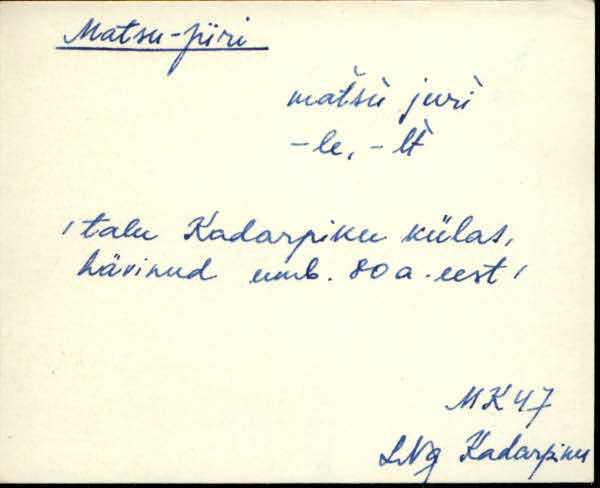 Matsu-Jüri
mat̀sù jurì
-le, -lt̀
/talu Kadarpiku külas,
hävinud umb. 80 a. eest/
MK 47
LNg Kadarpiku